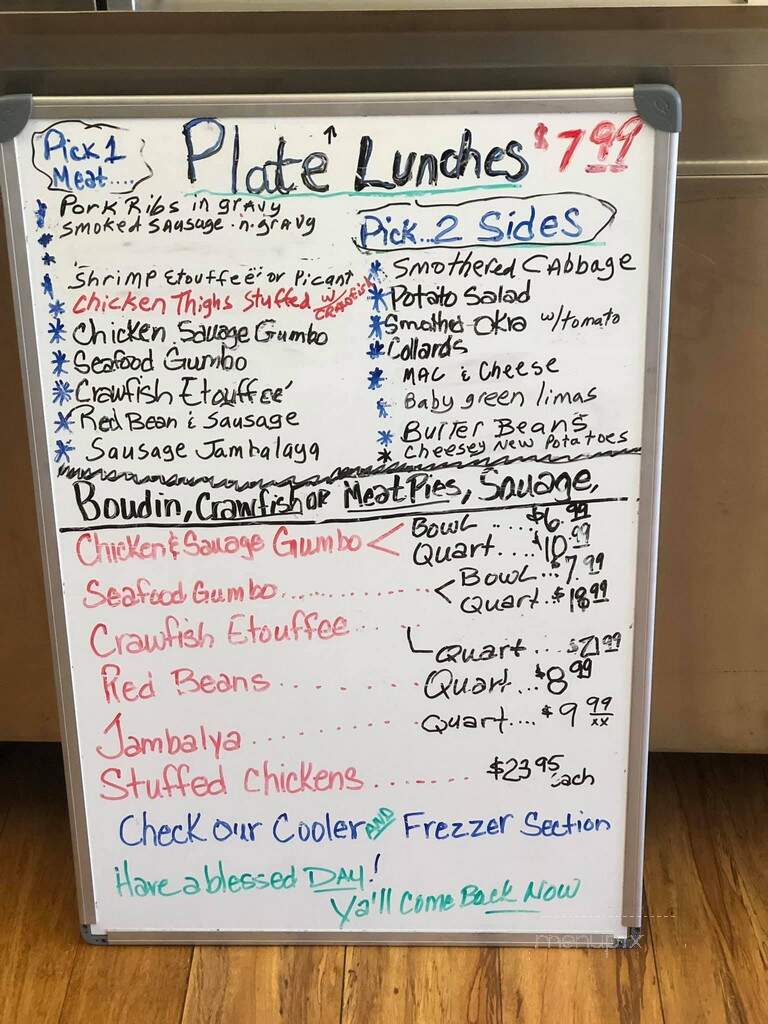 Pick 1
Meat....
Plate Lunches $7.99
Pork Ribs in gravy
Smoked Sausage in gravy
Shrimp Etouffee' or Picant
* Chicken Thighs Stuffed w/ Crawfish
* Chicken Sauage Gumbo
* Seafood Gumbo
* Crawfish Etouffee'
* Red Bean & Sausage
* Sausage Jambalaya
Pick..2 Sides
* Smothered Cabbage
* Potato Salad
* Smothed Okra w/tomato
* Collards
* Mac & Cheese
* Baby green limas
* Butter Beans
* Cheesey New Potatoes
Boudin, Crawfish or Meat Pies, Sauage,
Chicken & Sauage Gumbo < Bowl .... $6.99
Quart.... $10.99
Seafood Gumbo............ < Bowl...$7.99
Quart..$18.99
Crawfish Etouffee... Quart...$21.99
Red Beans..... Quart...$8.99
Jambalya........ Quart....$9.99
Stuffed Chickens....... $23.95 each
Check our Cooler AND Frezzer Section
Have a blessed DAY!
Ya'll Come Back Now
menupix